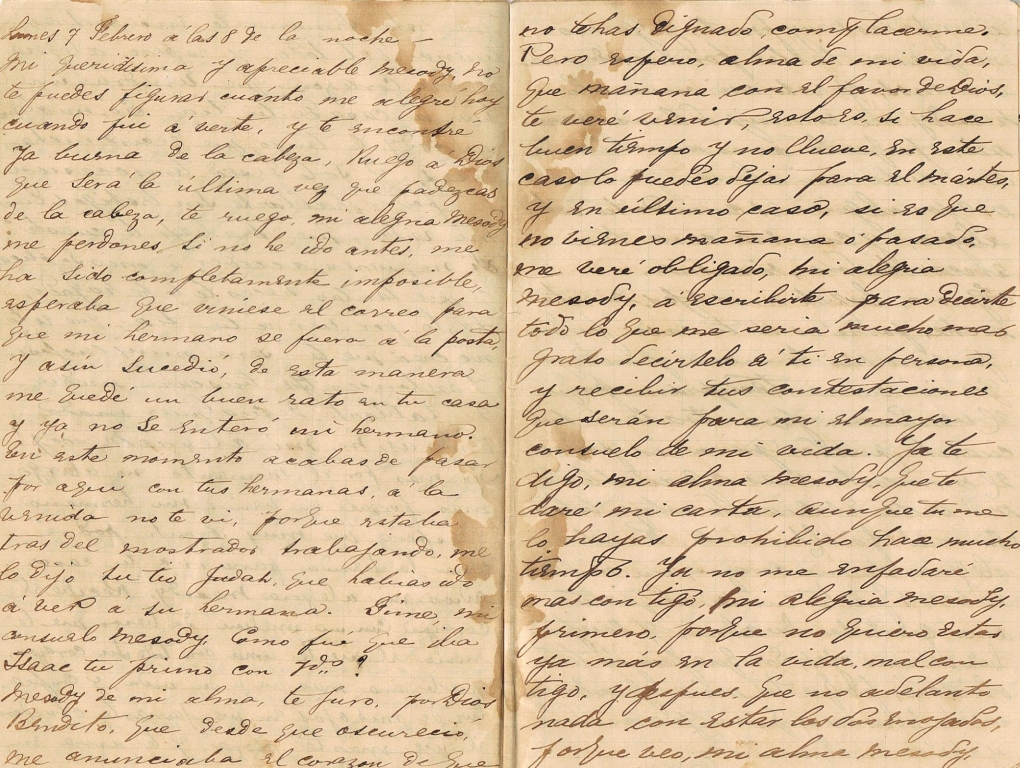 Lunes 7 Febrero á las 8 de la noche—
Mi queridísima y apreciable Mesody, no
te puedes figurar cuánto me alegré hoy
cuando fuí á verte, y te encontré
ya buena de la cabeza, Ruego a Dios
que será la última vez que padezcas
de la cabeza, te ruego, mi alegria Mesody
me perdones si no he ido antes, me
ha sido completamente imposible,
esperaba que viniese el correo para
que mi hermano se fuera á la posta,
y asín sucedió, de esta manera
me quedé un buen rato en tu casa
y ya no se enteró mi hermano.
En este momento acabas de pasar
por aquí con tus hermanas, á la
venida no te vi, porque estaba
tras del mostrador trabajando, me
lo dijo tu tio Judah, que habias ido
á ver a su hermana. Dime, mi
consuelo Mesody, como fué que iba
Isaac tu primo con Vds?
Mesody de mi alma, te juro, por Dios
Bendito, que desde que oscureció,
me anunciaba el corazon de que
no te has dignado, complacerme.
Pero espero, alma de mi vida,
que mañana con el favor de Dios,
te veré venir, esto es, si hace
buen tiempo y no llueve, en este
caso lo puedes dejar para el mártes,
y en último caso, si es que
no vienes mañana ó pasado,
me veré obligado, mi alegria
Mesody, á escribirte para decirte
todo lo que me seria mucho mas
grato decírtelo á ti en persona,
y recibir tus contestaciones
que serán para mi el mayor
consuelo de mi vida. Ya te
digo, mi alma Mesody, que te
daré mi carta, aunque tu me
lo hayas prohibido hace mucho
tiempo. Ya no me enfadaré
mas contigo, mi alegria Mesody,
primero, porque no quiero estar
ya más en la vida, mal con
tigo, y despues, que no adelanto
nada con estar los dos enojados,
porque veo, mi alma Mesody,